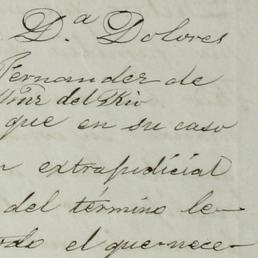 D.ª Dolores
Fernander de
del Rio
que en su caso
extrajudicial
del término le-
el que nece-